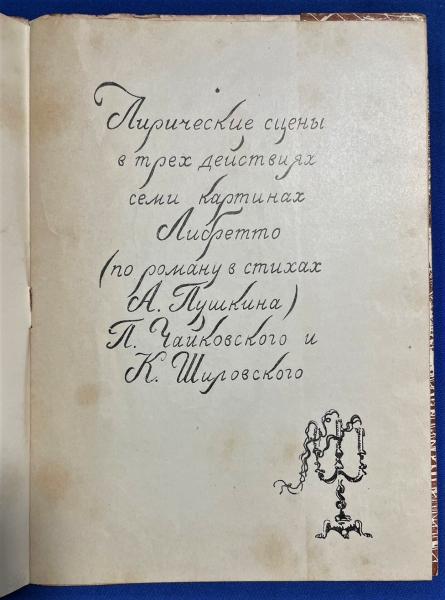 Лирические сцены
в трех действиях
семи картинах
Либретто
(по роману в стихах
А. Пушкина)
П. Чайковского и
К. Шиловского